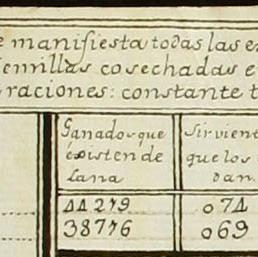 manifiesta todas las
semillas cosechadas
raciones: constante
Ganados que
existen de
Lana
sirvient
que los
dan.
44279
074
38776
069